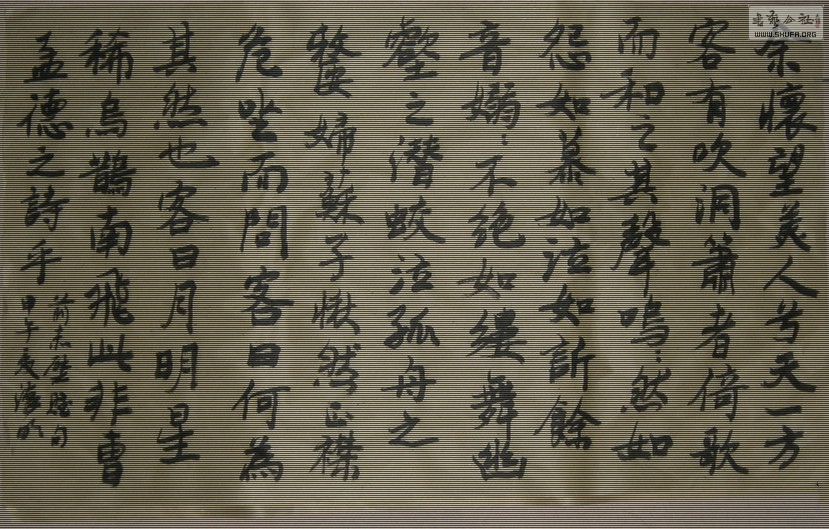 余懷望美人兮天一方
客有吹洞簫者倚歌
而和之其聲嗚〻然如
怨如慕如泣如訴餘
音嫋〻不絕如縷舞幽
壑之潛蛟泣孤舟之
嫠婦蘇子愀然正襟
危坐而問客曰何為
其然也客曰月明星
稀烏鵲南飛此非曹
孟德之詩乎
前赤壁賦句
甲午夏海
www.SHUFA.ORG